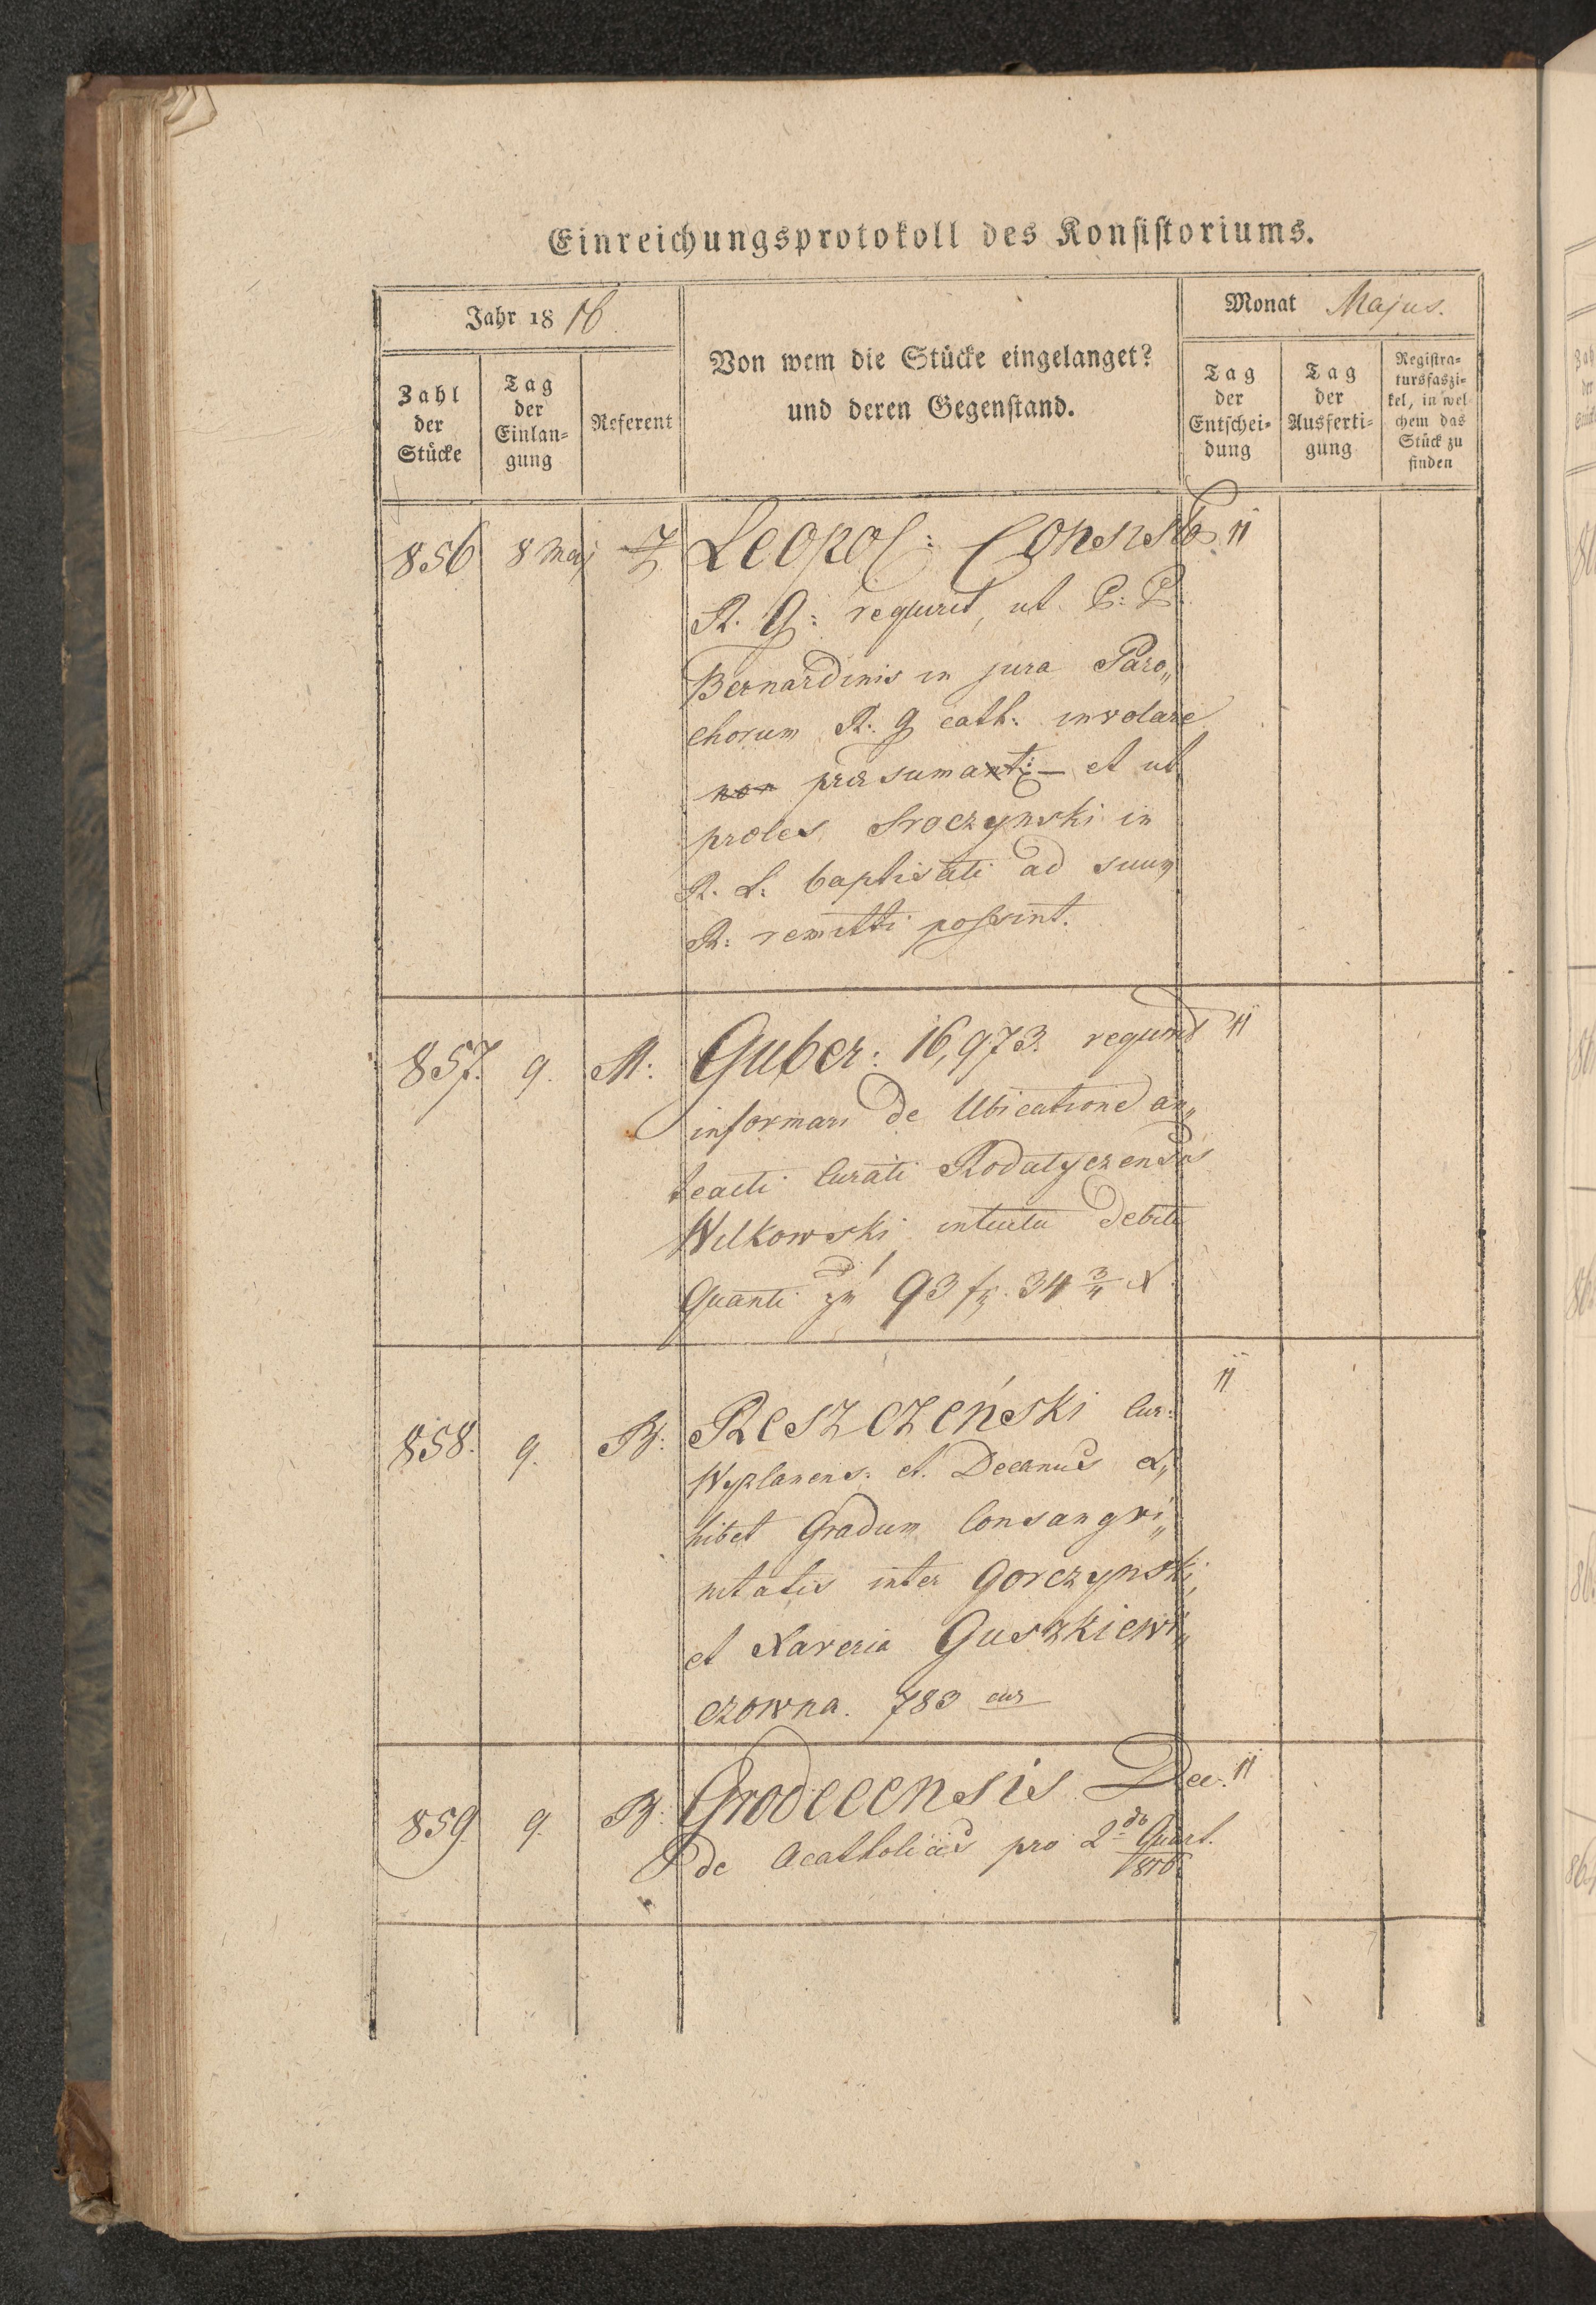 Einreichungsprotokoll des Konsistoriums.
Jahr 18 16
Monat Majus.
Zahl der Stücke
Tag der Einlan=gung
Referent
Von wem die Stücke eingelanget?
und deren Gegenstand.
Tag der Entschei=dung
Tag der Ausferti=gung
Registra=tursfaszi=kel, in wel=chem das Stück zu finden
856 8 Maj Leopol: 11
R. G: requirit, ut P: P:
Bernardinis in jura Paro„
chorum R: g cath: involare
non præsumant: — et ut
proles Sroczynski in
R. L: baptisati ad suum
R: remitti possint.
857. 9. M: Guber: 16,973. requirit 11
informari de Ubicatione an„
teacti Curati Rodatyczensis
Wilkowski intuitu debiti
Quanti 93 fr. 34 3/4 X
858. 9. B: Reszczeński Cur: 11
Wyzlanens: et Decanus ex„
hibet Gradum Consangvi„
nitatis inter Gorczynski,
et Xaveria Guszkiewi„
czowna. 783
859 9. B: Grodecensis Dec. 11
de Acatholicis pro 2do Quart.
1816.